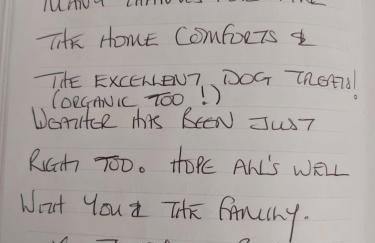 MANY THANKS FOR THE
THE HOME COMFORTS &
THE EXCELLENT, DOG TREATS!
(ORGANIC TOO!)
WEATHER HAS BEEN JUST
RIGHT TOO. HOPE ALL'S WELL
WITH YOU & THE FAMILY.